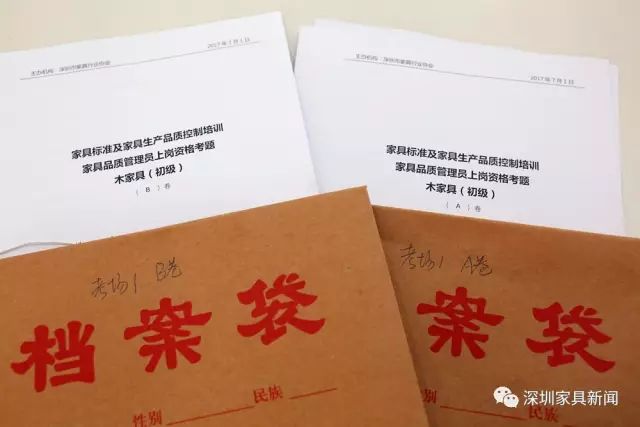 2017年7月1日
主办机构：深圳市家具行业协会
家具标准及家具生产品质控制培训
家具品质管理员上岗资格考题
木家具（初级）
（ B ）卷
2017年7月1日
主办机构：深圳市家具行业协会
家具标准及家具生产品质控制培训
家具品质管理员上岗资格考题
木家具（初级）
（ A ）卷
考场1 B卷
档案袋
性别 民族
考场1 A卷
案袋
性别 民族
深圳家具新闻